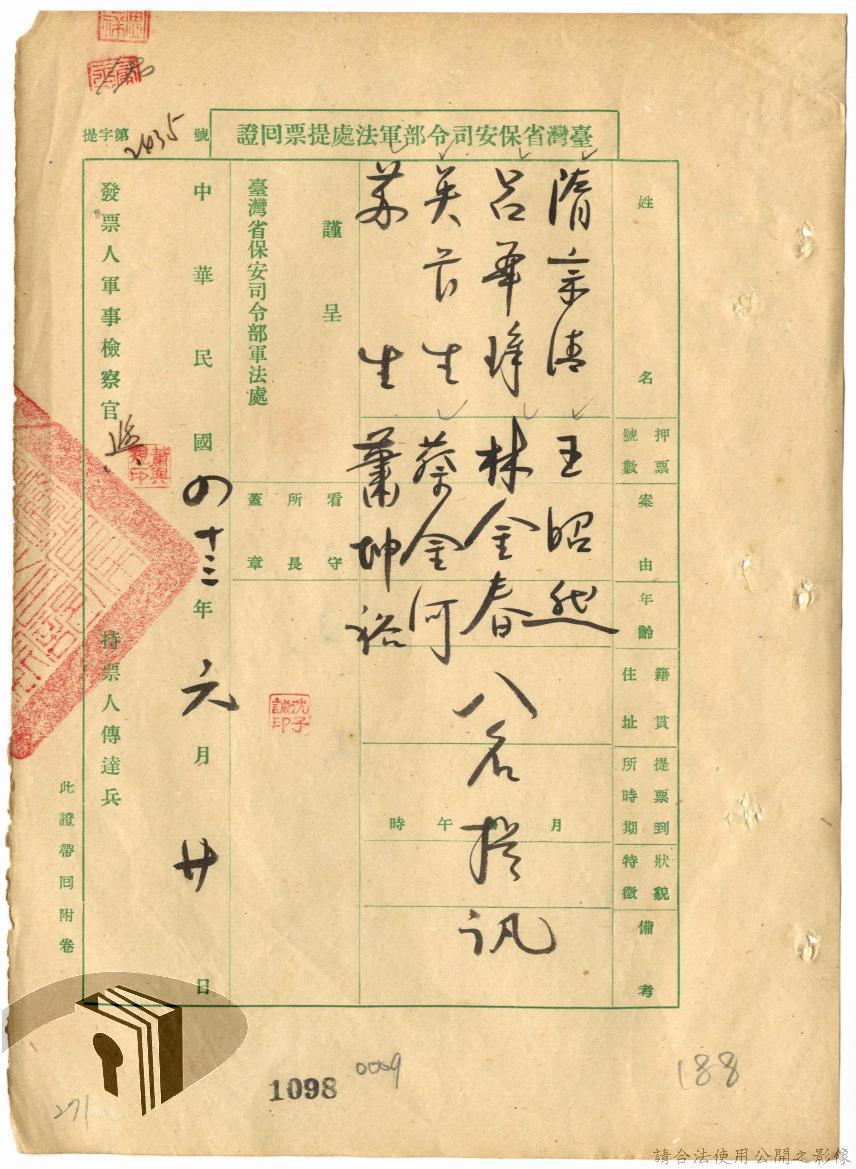 臺灣省保安司令部軍法處提票回證
提字第2435號
姓名
押票號數
案由
年齡
籍貫住址
提票到所時期
狀貌特徵
備考
隋京清
王昭然
呂華璋
林金春
吳谷生
蔡金河
蘇生
蕭坤裕
八名提訊
月 午 時
看守所長蓋章
謹呈
臺灣省保安司令部軍法處
中華民國四十三年六月廿日
發票人軍事檢察官
持票人傳達兵
此證帶回附卷
沈子誠印
1098
0059
188
271
請合法使用公開之影像